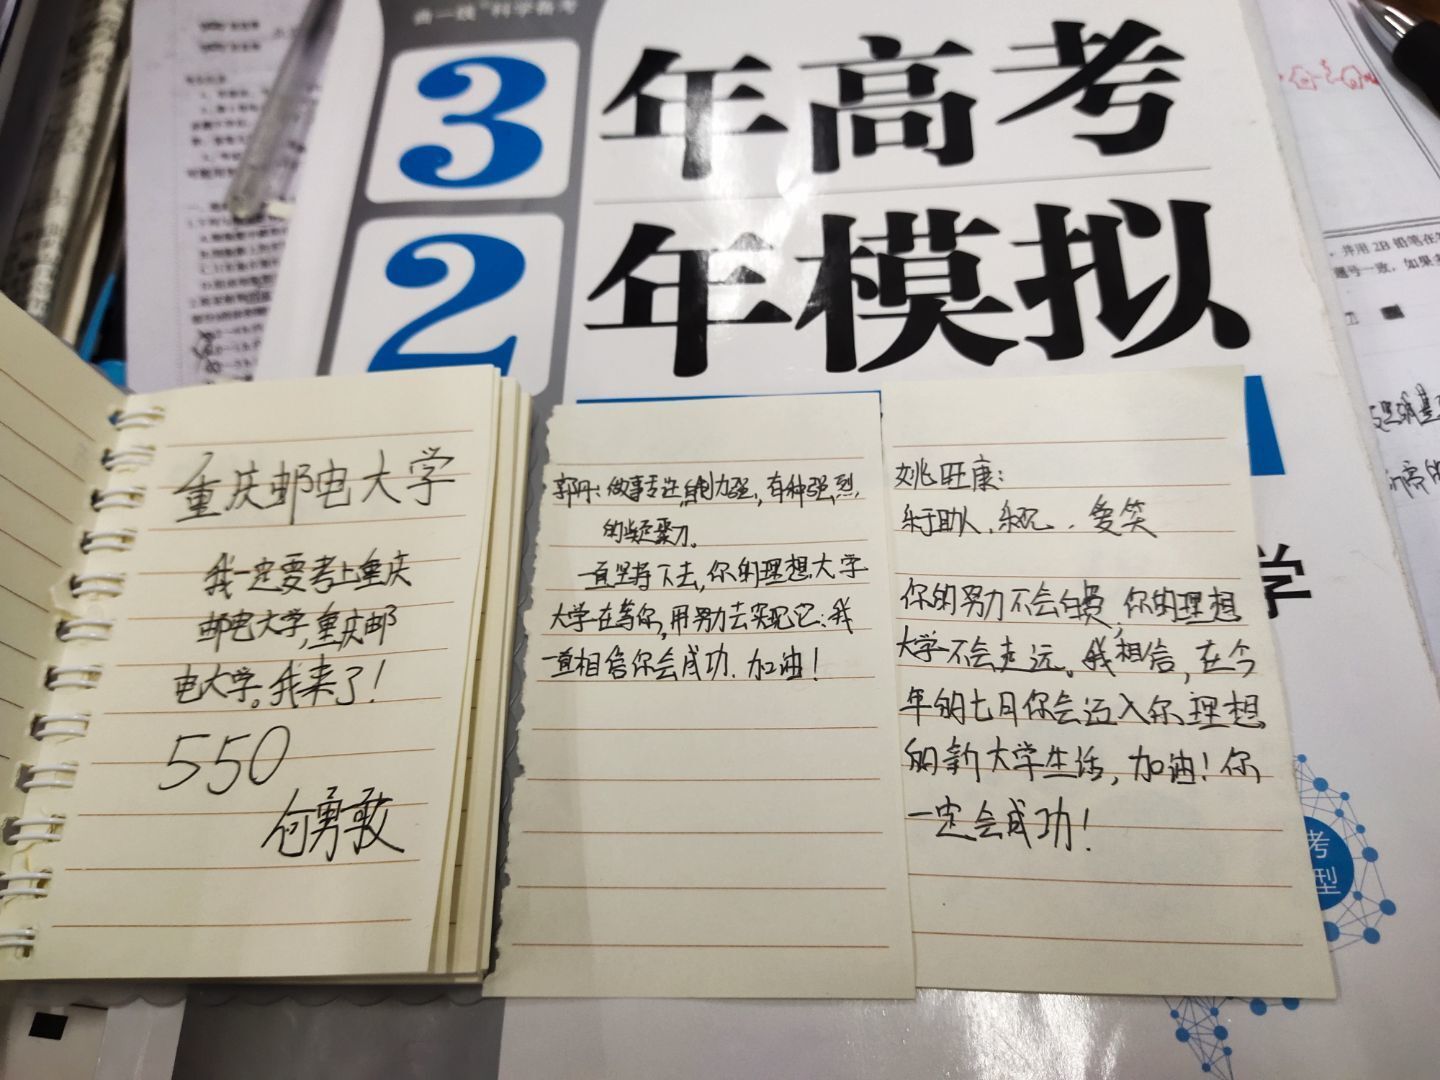 3年高考
2年模拟
重庆邮电大学
我一定要考上重庆
邮电大学,重庆邮
电大学。我来了!
550
何勇敢
郭丹:做事专注,自制力强,有种强烈
的凝聚力。
一直坚持下去,你的理想大学
大学在等你,用努力去实现它:我
一直相信你会成功.加油!
姚旺康:
乐于助人、乐观、爱笑
你的努力不会白费,你的理想
大学不会走远。我相信,在今
年的七月你会迈入你理想
的新大学生活,加油!你
一定会成功!
学
考
型
,并用2B铅笔在
题号一致,如果